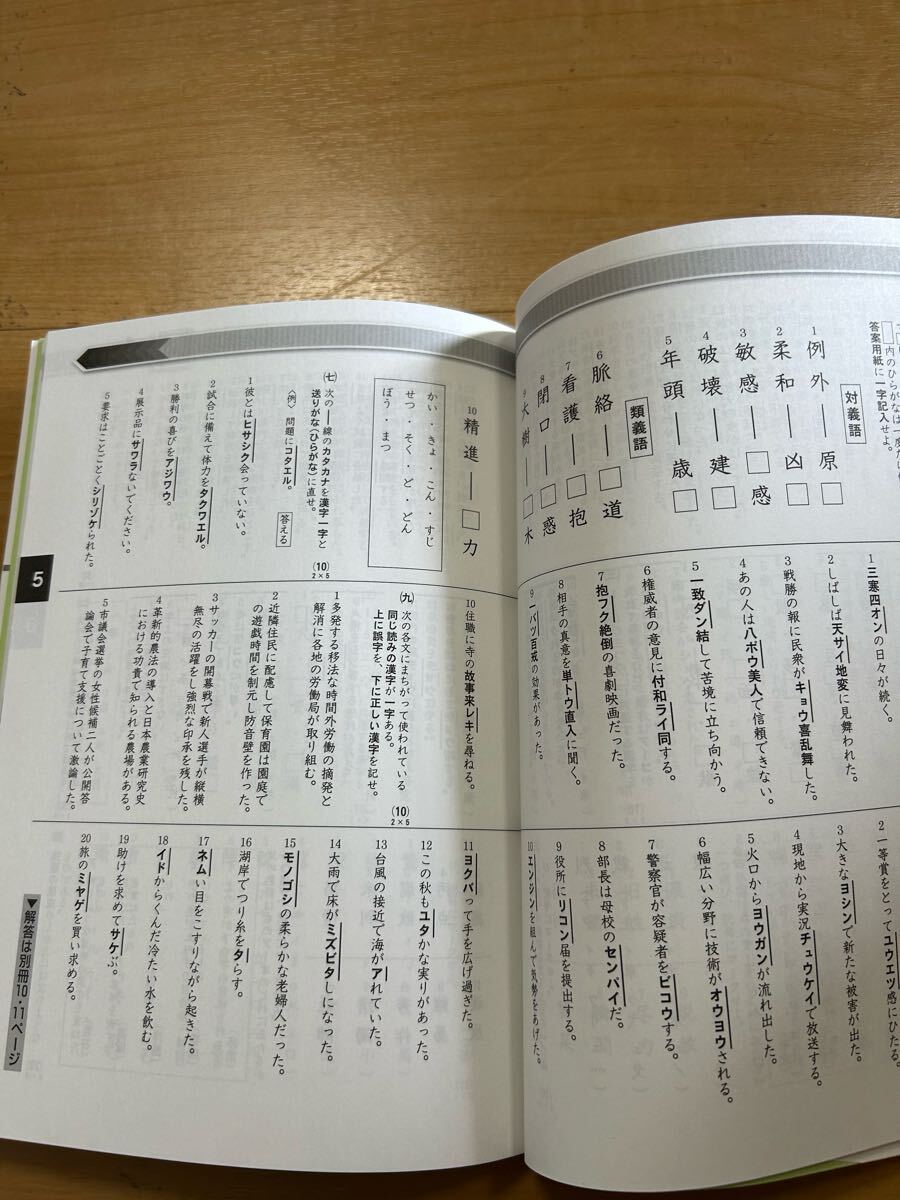 内のひらがなは一度だけ
答案用紙に一字記入せよ。
対義語
1 例外―□原
2 柔和―凶□
3 敏感―□感
4 破壊―建□
5 年頭―歳□
類義語
6 脈絡―□道
7 看護―□抱
8 閉口―□惑
9 大樹―□木
10 精進―□力
かい・きょ・こん・すじ
せつ・そく・ど・どん
ぼう・まつ
(七) 次の―線のカタカナを漢字一字と
送りがな(ひらがな)に直せ。
(10)
2×5
〈例〉 問題にコタエル。 答える
1 彼とはヒサシク会っていない。
2 試合に備えて体力をタクワエル。
3 勝利の喜びをアジワウ。
4 展示品にサワラないでください。
5 要求はことごとくシリゾケられた。
1 三寒四オンの日々が続く。
2 しばしば天サイ地変に見舞われた。
3 戦勝の報に民衆がキョウ喜乱舞した。
4 あの人は八ボウ美人で信頼できない。
5 一致ダン結して苦境に立ち向かう。
6 権威者の意見に付和ライ同する。
7 抱フク絶倒の喜劇映画だった。
8 相手の真意を単トウ直入に聞く。
9 一バツ百戒の効果があった。
10 住職に寺の故事来レキを尋ねる。
(九) 次の各文にまちがって使われている
同じ読みの漢字が一字ある。
上に誤字を、下に正しい漢字を記せ。
(10)
2×5
1 多発する移法な時間外労働の摘発と
解消に各地の労働局が取り組む。
2 近隣住民に配慮して保育園は園庭で
の遊戯時間を制元し防音壁を作った。
3 サッカーの開幕戦で新人選手が縦横
無尽の活躍をし強烈な印承を残した。
4 革新的農法の導入と日本農業研究史
における功責で知られる農場がある。
5 市議会選挙の女性候補二人が公開答
論会で子育て支援について激論した。
2 一等賞をとってユウエツ感にひたる。
3 大きなヨシンで新たな被害が出た。
4 現地から実況チュウケイで放送する。
5 火口からヨウガンが流れ出した。
6 幅広い分野に技術がオウヨウされる。
7 警察官が容疑者をビコウする。
8 部長は母校のセンパイだ。
9 役所にリコン届を提出する。
10 エンジンを組んで気勢をあげた。
11 ヨクバって手を広げ過ぎた。
12 この秋もユタかな実りがあった。
13 台風の接近で海がアれていた。
14 大雨で床がミズビタしになった。
15 モノゴシの柔らかな老婦人だった。
16 湖岸でつり糸をタらす。
17 ネムい目をこすりながら起きた。
18 イドからくんだ冷たい水を飲む。
19 助けを求めてサケぶ。
20 旅のミヤゲを買い求める。
5
▼解答は別冊10・11ページ